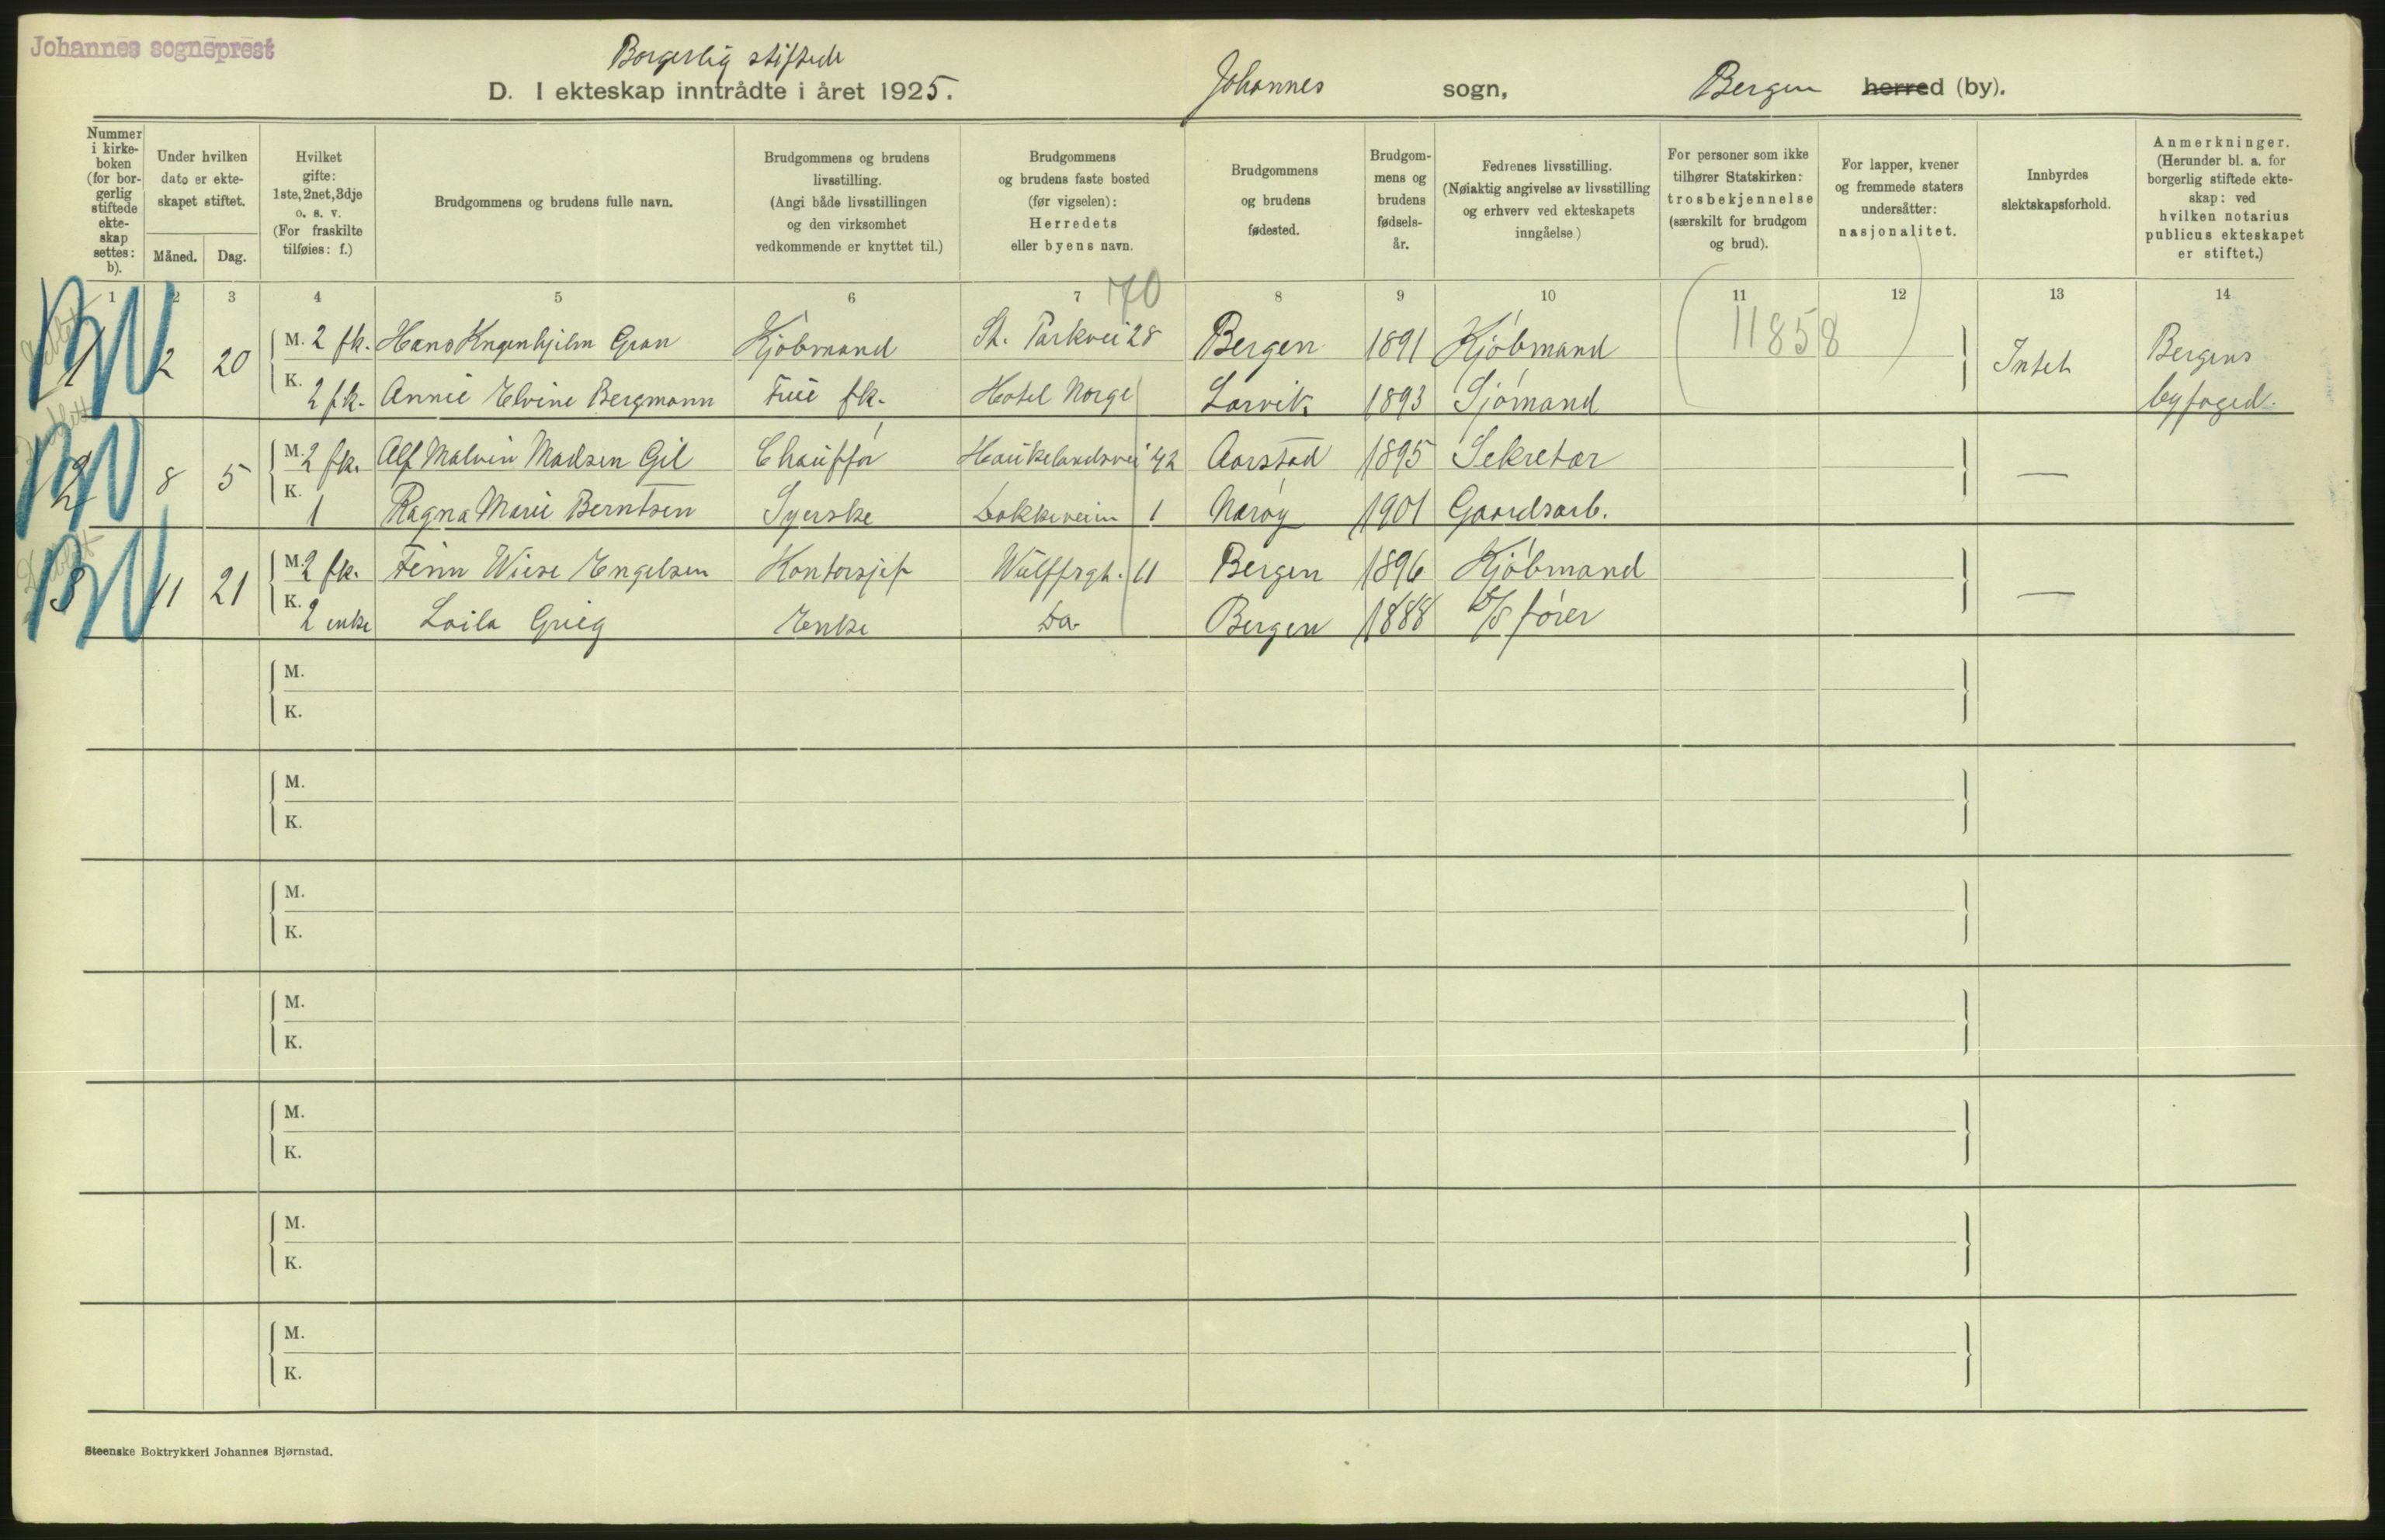 Johannes sogneprest
Borgerlig stiftede
D. I ekteskap inntrådte i året 1925. Johannes sogn, Bergen herred (by).
Nummer i kirkeboken (for borgerlig stiftede ekteskap settes: b).
Under hvilken dato er ekteskapet stiftet.
Måned. Dag.
Hvilket gifte: 1ste, 2net, 3dje o. s. v. (For fraskilte tilføies: f.)
Brudgommens og brudens fulle navn.
Brudgommens og brudens livsstilling. (Angi både livsstillingen og den virksomhet vedkommende er knyttet til.)
Brudgommens og brudens faste bosted (før vigselen): Herredets eller byens navn.
Brudgommens og brudens fødested.
Brudgommens og brudens fødselsår.
Fedrenes livsstilling. (Nøiaktig angivelse av livsstilling og erhverv ved ekteskapets inngåelse)
For personer som ikke tilhører Statskirken: trosbekjennelse (særskilt for brudgom og brud).
For lapper, kvener og fremmede staters undersåtter: nasjonalitet.
Innbyrdes slektskapsforhold.
Anmerkninger. (Herunder bl. a. for borgerlig stiftede ekteskap: ved hvilken notarius publicus ekteskapet er stiftet.)
1 2 3 4 5 6 7 8 9 10 11 12 13 14
70
(11858)
1 2 20 M. 2 fk. Hans Knagenhjelm Gran Kjøbmand St. Parkvei 28 Bergen 1891 Kjøbmand Intet Bergens
K. 2 fk. Annie Elvine Bergmann Frue fk. Hotel Norge Larvik 1893 Sjømand byfoged.
2 8 5 M. 2 fk. Alf Malvin Madsen Gil Chauffør Haukelandsvei 42 Aarstad 1895 Sekretær —
K. 1 Ragna Marie Berntsen Syerske Dokkeveien 1 Nærøy 1901 Gaardsarb.
3 11 21 M. 2 fk. Finn Wiese Engelsen Kontorsjef Wulffsgt. 11 Bergen 1896 Kjøbmand —
K. 2 enke Laila Grieg Enke Do. Bergen 1888 D/S fører
M.
K.
M.
K.
M.
K.
M.
K.
M.
K.
M.
K.
M.
K.
Steenske Boktrykkeri Johannes Bjørnstad.